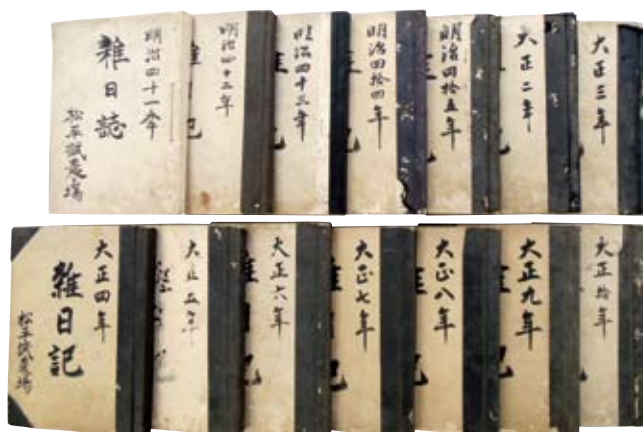 明治四十一年
雑日誌
松平試農場
明治四十二年
明治四十三年
明治四拾四年
明治四拾五年
大正二年
大正三年
大正四年
雑日記
松平試農場
大正五年
大正六年
大正七年
大正八年
大正九年
大正拾年